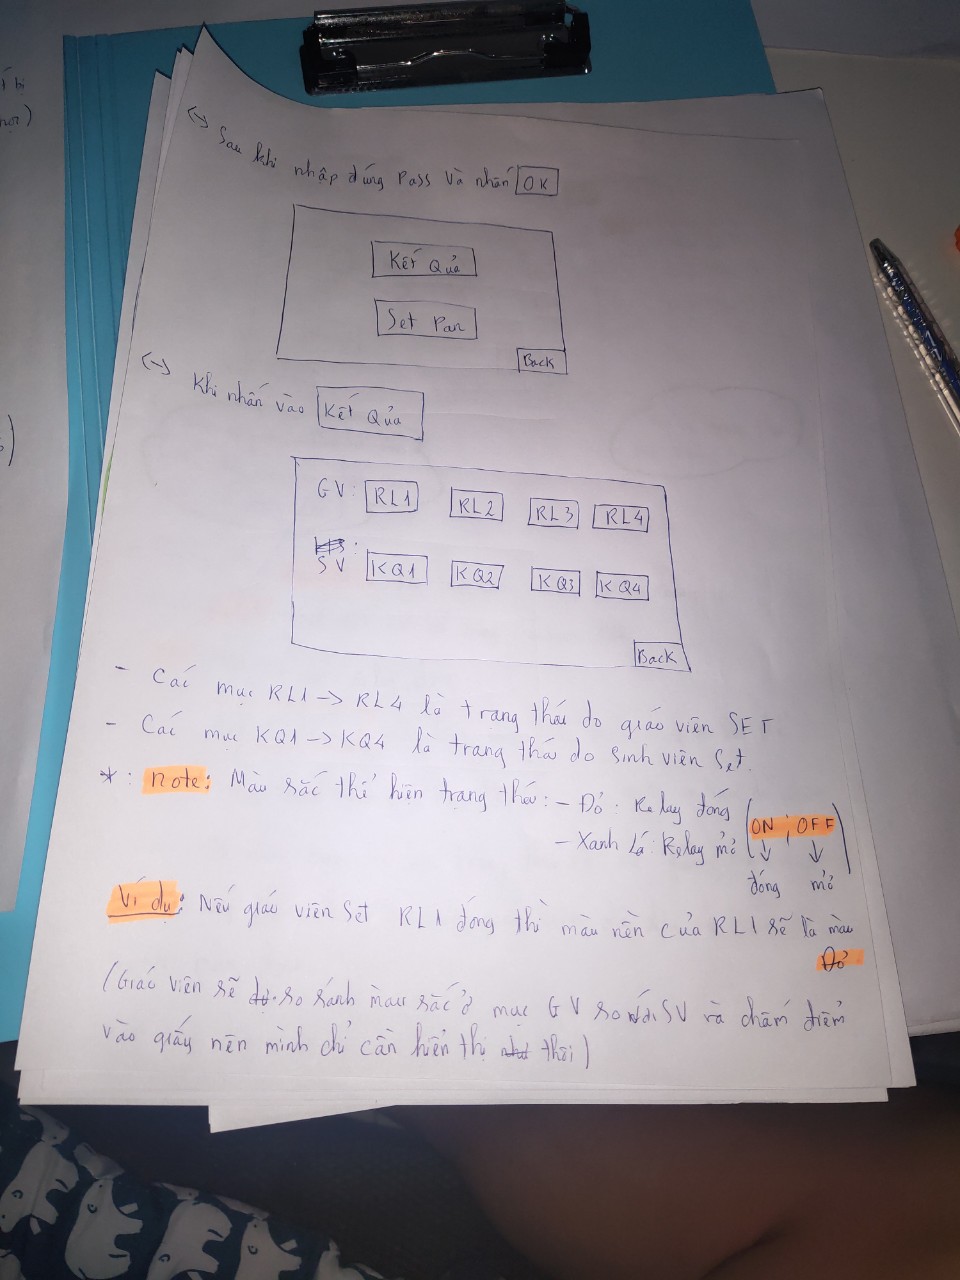 (→) Sau khi nhập đúng Pass và nhấn OK
Kết Quả
Set Pan
Back
(→) Khi nhấn vào Kết Quả
GV: RL1 RL2 RL3 RL4
SV: KQ1 KQ2 KQ3 KQ4
Back
- Các mục RL1 → RL4 là trạng thái do giáo viên SET
- Các mục KQ1 → KQ4 là trạng thái do sinh viên Set.
*. note: Màu sắc thể hiện trạng thái: - Đỏ: Relay đóng
- Xanh Lá: Relay mở
(ON ; OFF)
↓ ↓
đóng mở
Ví dụ: Nếu giáo viên Set RL1 đóng thì màu nền của RL1 sẽ là màu
Đỏ
(Giáo viên sẽ so sánh màu sắc ở mục GV so với SV và chấm điểm
vào giấy nên mình chỉ cần hiển thị thôi)